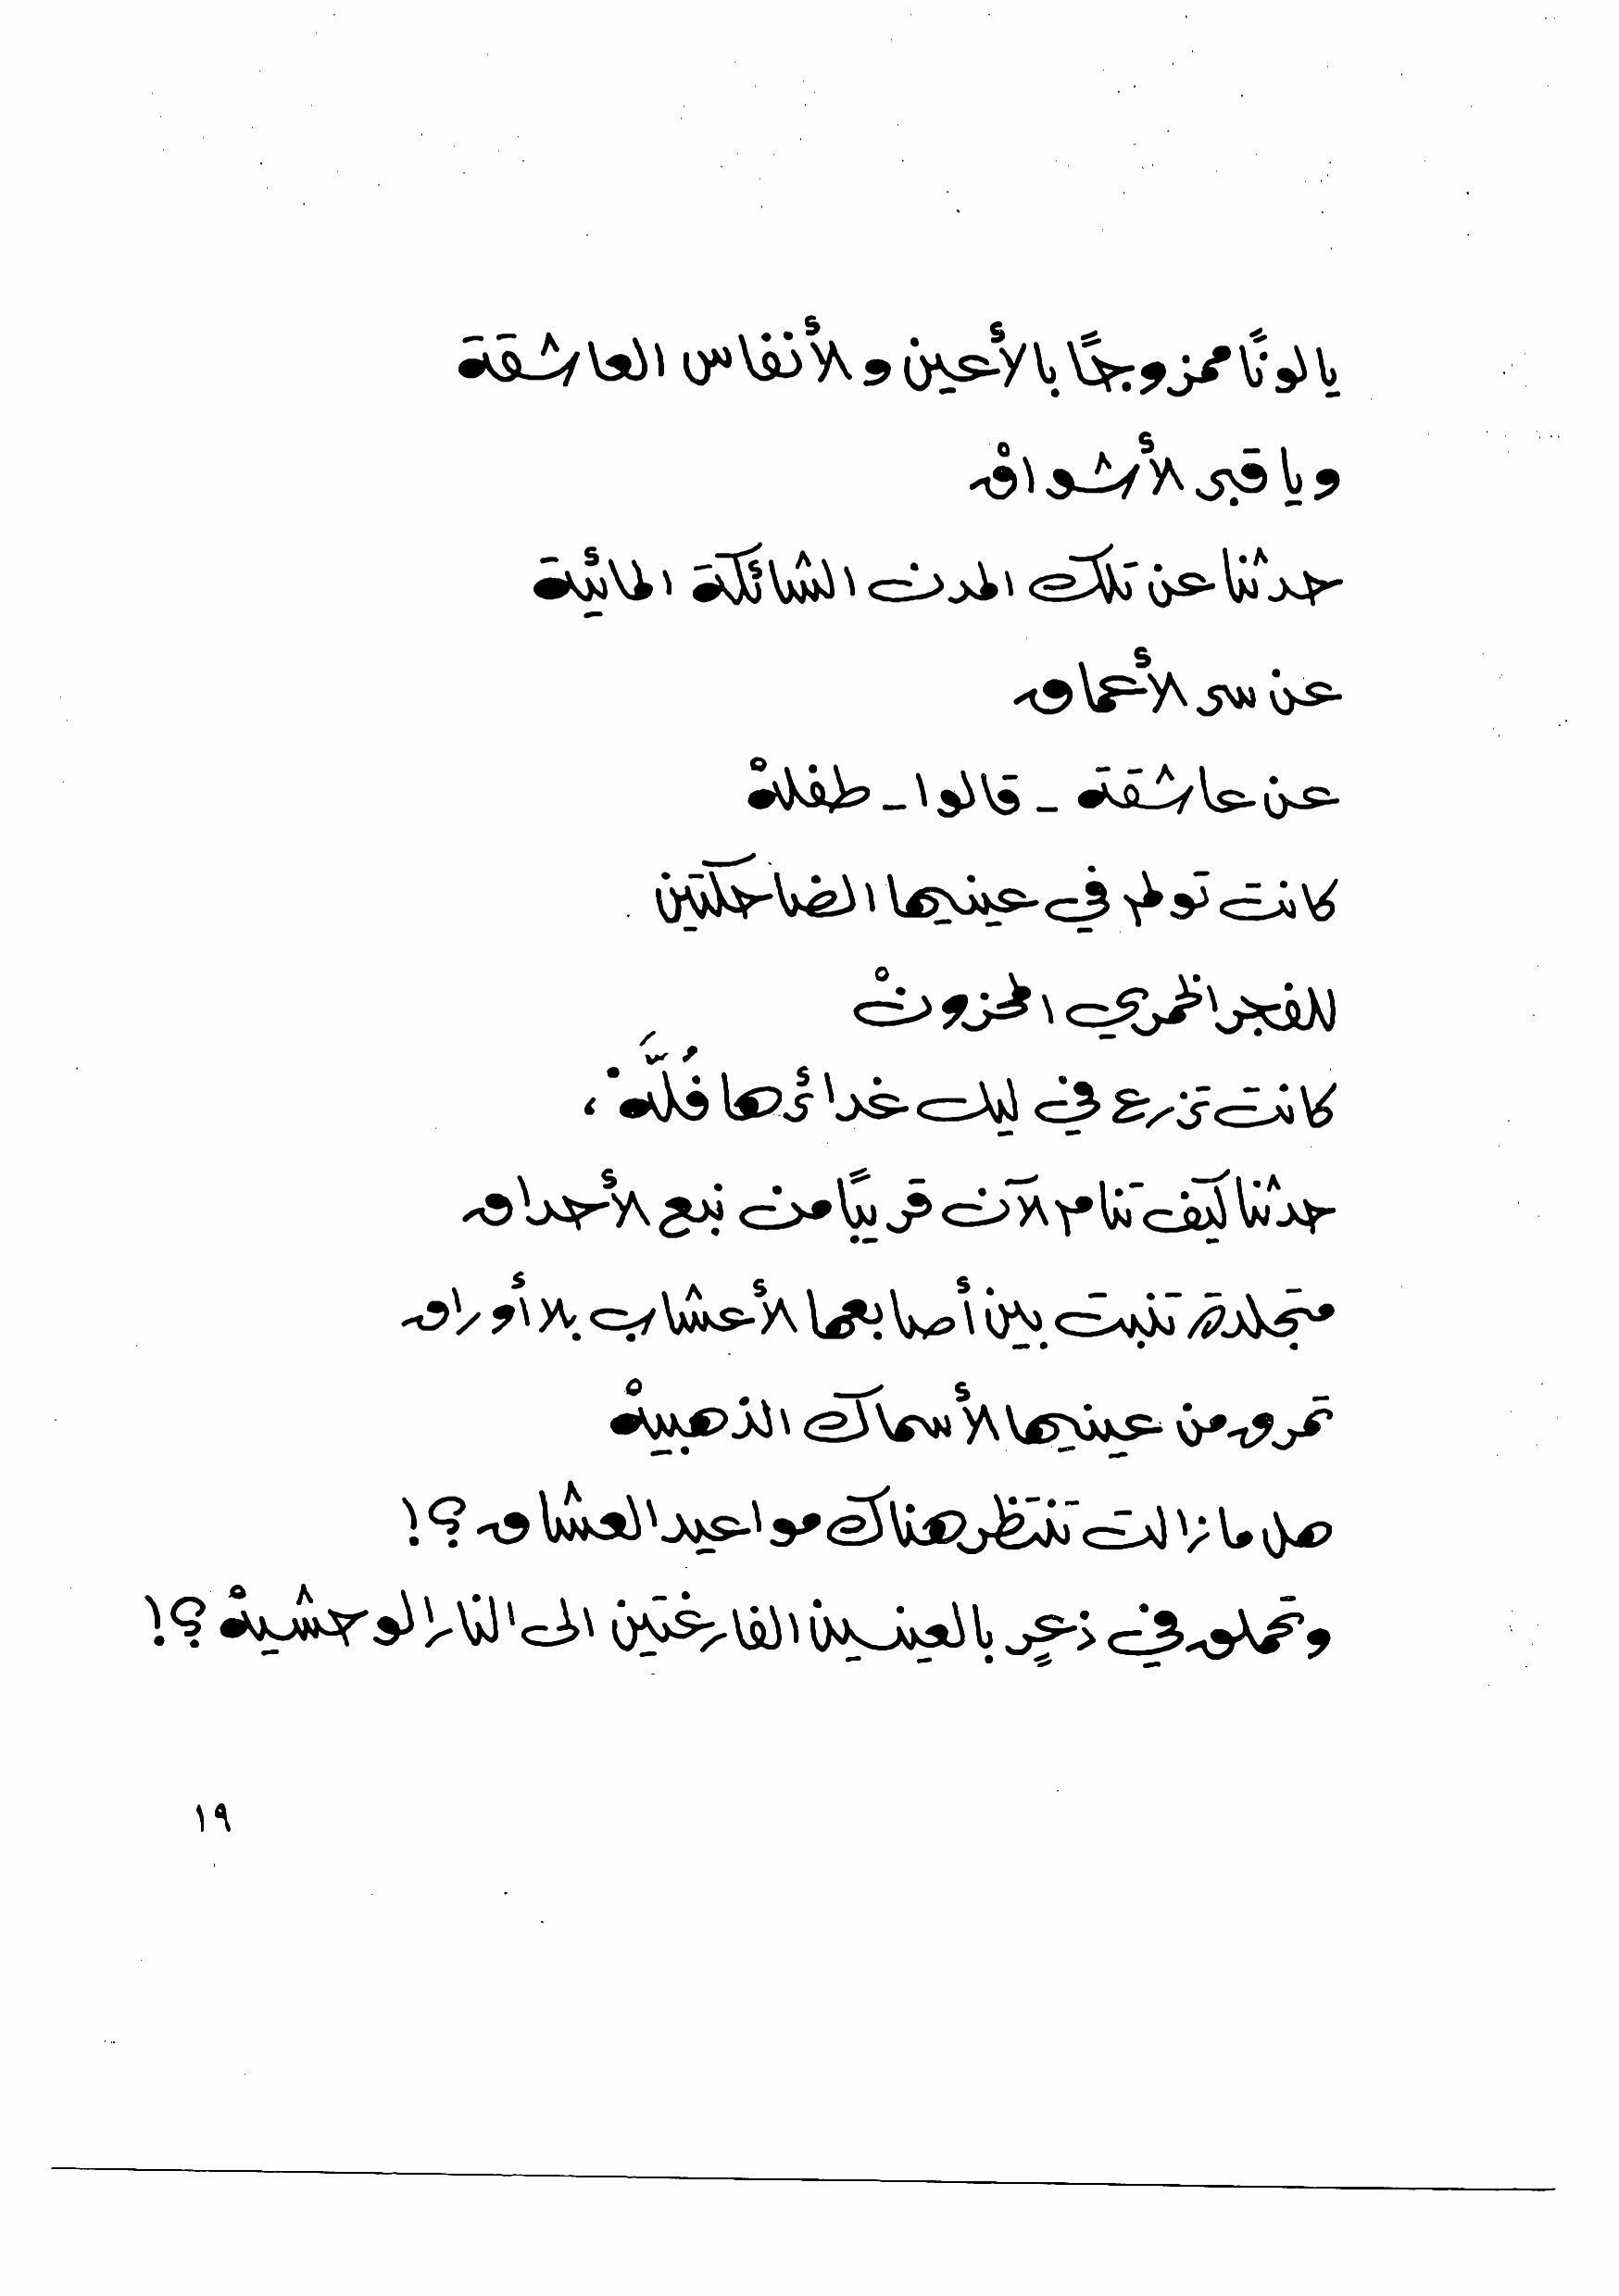 يا لونًا ممزوجًا بالأعين والأنفاس العاشقة
ويا قبر الأشواقْ
حدثنا عن تلك المدن الشائكة المائية
عن سر الأعماق
عن عاشقة - قالوا - طفلةْ
كانت تولم في عينيها الضاحكتين
للفجر الخمري المحزونْ
كانت تزرع في ليل غدائرها فُلَّةْ،
حدثنا كيف تنام الآن قريبًا من نبع الأحداق
متجلدة تنبت بين أصابعها الأعشاب بلا أوراق
تمرق من عينيها الأسماك الذهبيةْ
هل ما زالت تنتظر هناك مواعيد العشاق؟!
وتحملق في ذعرٍ بالعينين الفارغتين الى النار الوحشيةْ؟!
١٩